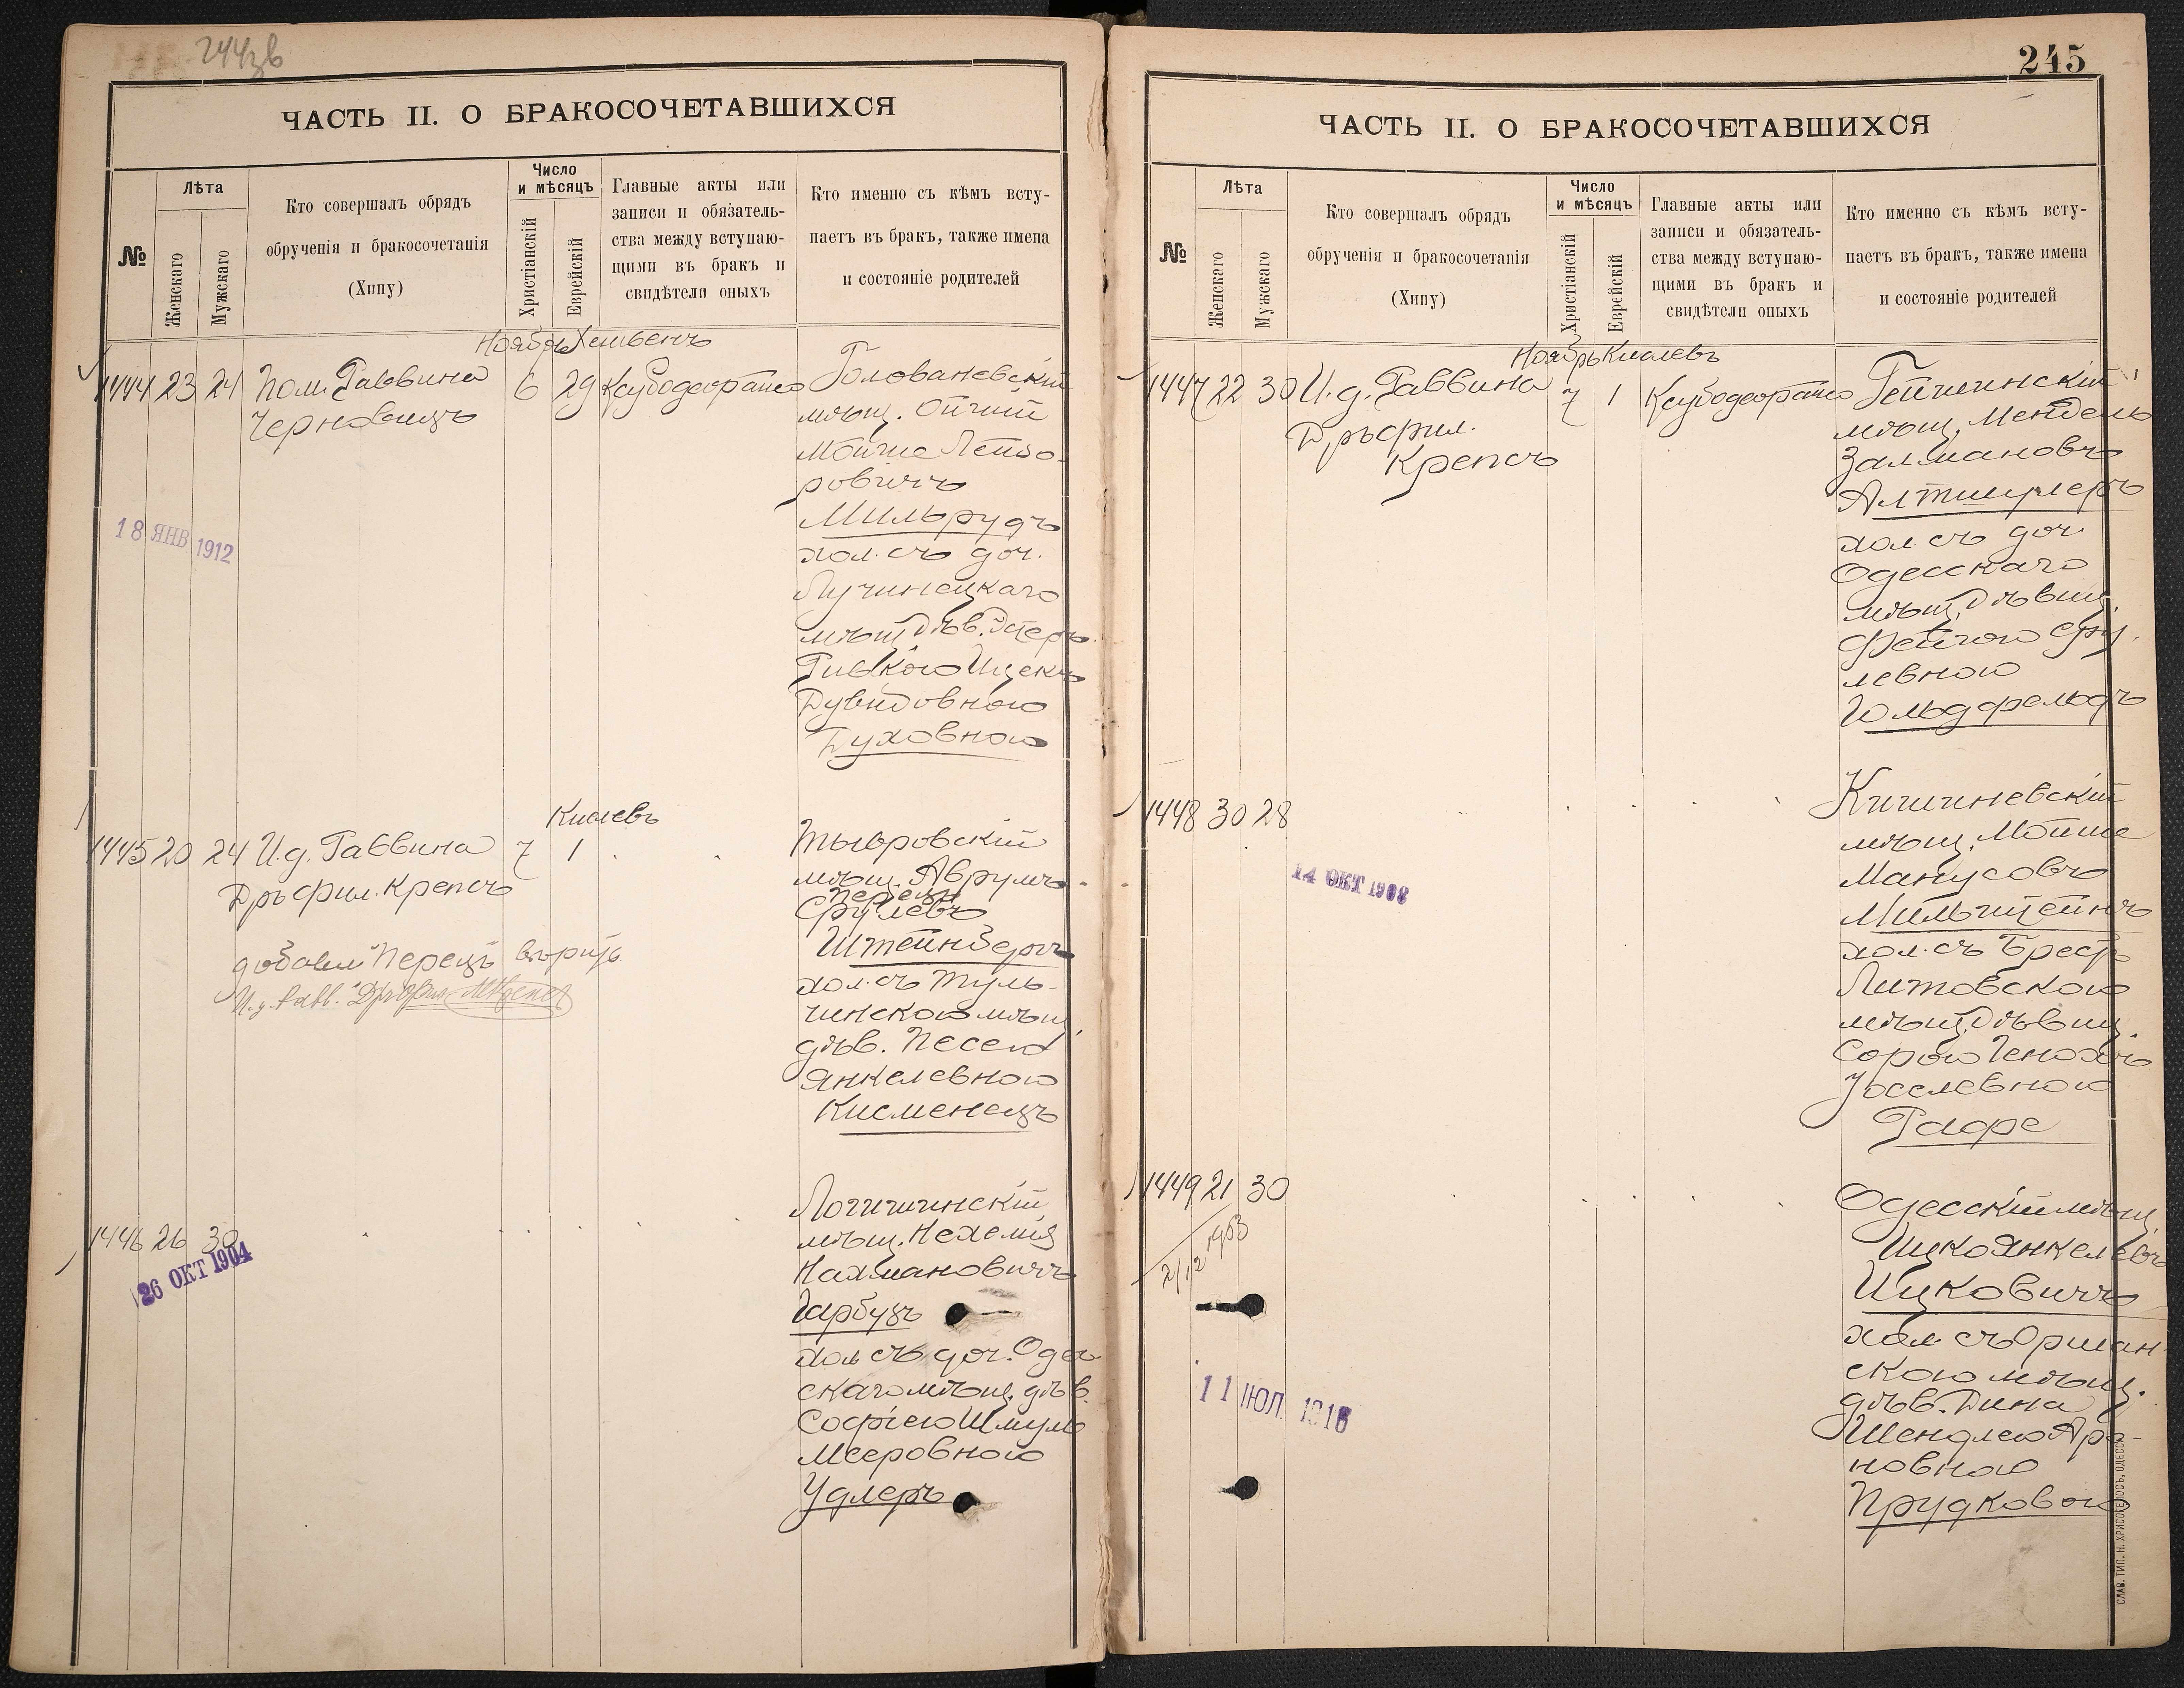 244зв
ЧАСТЬ II. О БРАКОСОЧЕТАВШИХСЯ
№
Лѣта
Женскаго
Мужскаго
Кто совершалъ обрядъ
обрученія и бракосочетанія
(Хипу)
Число
и мѣсяцъ
Христіанскій
Еврейскій
Главные акты или
записи и обязатель-
ства между вступаю-
щими въ бракъ и
свидѣтели оныхъ
Кто именно съ кѣмъ всту-
паетъ въ бракъ, также имена
и состояніе родителей
Ноябрь Хешвенъ
1444 23 24 Пом. Раввина 6 29
Черновицъ
Голованевскій
мѣщ.
Мойше Лейзо-
ровичъ
Мильрудъ
хол. съ доч.
Лучинецкаго
мѣщ. дѣв. Эстеръ
Ривкою Ицекъ
Дувидовною
Духовною
18 ЯНВ 1912
Кислевъ
1445 20 24 И.д. Раввина 7 1
Дръ фил. Крепсъ
Тывровскій
мѣщ. Аврумъ-
Перецъ
Срулевъ
Штейнбергъ
хол. съ Туль-
чинскою мѣщ.
дѣв. Песею
Янкелевною
Кисменецъ
добавл. "Перецъ" вѣрить
И.д. Равв. Дръ Фил. Крепсъ
1446 26 30
26 ОКТ 1904
Логишинскій
мѣщ. Нехемія
Нахмановичъ
Гарбузъ
хол. съ доч. Одес-
скаго мѣщ. дѣв.
Софіею Шмуль
Мееровною
Удлеръ
245
ЧАСТЬ II. О БРАКОСОЧЕТАВШИХСЯ
№
Лѣта
Женскаго
Мужскаго
Кто совершалъ обрядъ
обрученія и бракосочетанія
(Хипу)
Число
и мѣсяцъ
Христіанскій
Еврейскій
Главные акты или
записи и обязатель-
ства между вступаю-
щими въ бракъ и
свидѣтели оныхъ
Кто именно съ кѣмъ всту-
паетъ въ бракъ, также имена
и состояніе родителей
Ноябрь Кислевъ
1447 22 30 И.д. Раввина 7 1
Дръ фил.
Крепсъ
мѣщ. Мендель
Залмановъ
Алтшулеръ
хол. съ доч.
Одесскаго
мѣщ. дѣвиц.
Фейгою Сру-
левною
Гольдфельдъ
1448 30 28
14 ОКТ 1908
Кишиневскій
мѣщ. Мойше
Манусовъ
Мильштейнъ
хол. съ Брестъ
Литовскою
мѣщ. дѣвиц.
Сорою Генохъ
Іоселевною
Рафе
1449 21 30
2/12 1953
11 ЮЛ. 1916
Одесскій мѣщ.
Ицко Янкелевъ
Ицковичъ
хол. съ Оршан-
скою мѣщ.
дѣв. Дина
Шендлею Аро-
новною
Прудковою
СЛАВ. ТИП. Н. ХРИСОГЕЛОСЪ, ОДЕССА.